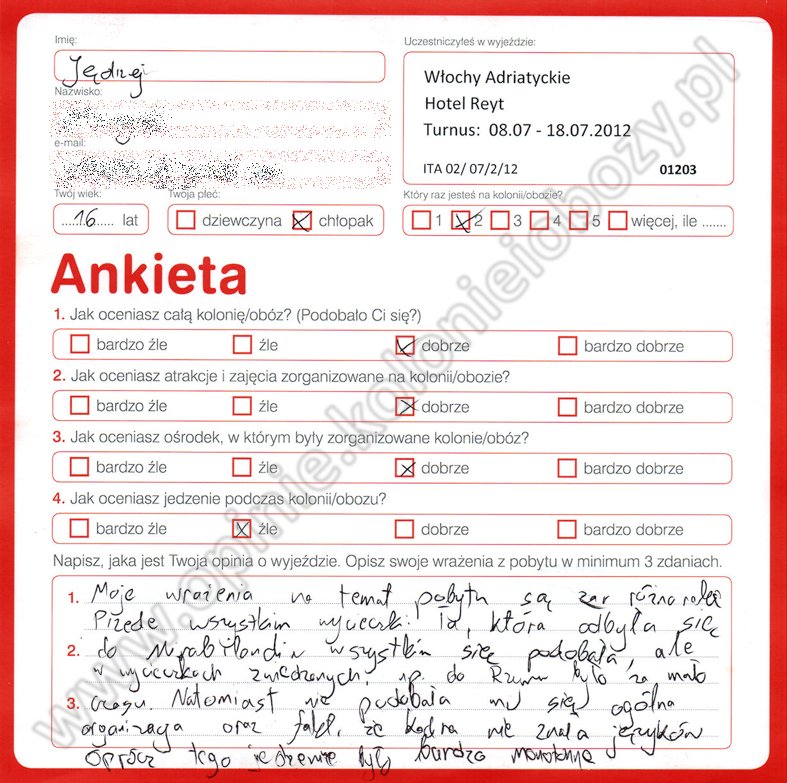 Imię:
Jędrzej
Nazwisko:
e-mail:
Uczestniczyłeś w wyjeździe:
Włochy Adriatyckie
Hotel Reyt
Turnus: 08.07 - 18.07.2012
ITA 02/ 07/2/12 01203
Twój wiek: Twoja płeć: Który raz jesteś na kolonii/obozie?
16 lat dziewczyna chłopak 1 2 3 4 5 więcej, ile .......
Ankieta
1. Jak oceniasz całą kolonię/obóz? (Podobało Ci się?)
bardzo źle źle dobrze bardzo dobrze
2. Jak oceniasz atrakcje i zajęcia zorganizowane na kolonii/obozie?
bardzo źle źle dobrze bardzo dobrze
3. Jak oceniasz ośrodek, w którym były zorganizowane kolonie/obóz?
bardzo źle źle dobrze bardzo dobrze
4. Jak oceniasz jedzenie podczas kolonii/obozu?
bardzo źle źle dobrze bardzo dobrze
Napisz, jaka jest Twoja opinia o wyjeździe. Opisz swoje wrażenia z pobytu w minimum 3 zdaniach.
1. Moje wrażenia na temat pobytu są
Przede wszystkim wycieczki. Ta, która odbyła się
2. do Mirabilandii wszystkim się podobała, ale
w wycieczkach zwiedzanych, np. do Rzymu było za mało
3. czasu. Natomiast nie podobała mi się ogólna
organizacja oraz fakt, że kadra nie znała języków
oprócz tego jedzenie było bardzo monotonne
www.opinie.kolonieiobozy.pl